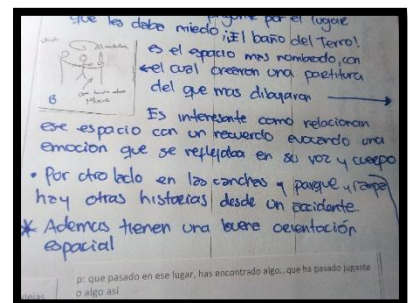 que les daba miedo, ¡El baño del Terro!
es el espacio mas nombrado, con
el cual crearon una partitura
del que mas dibujaron
B
Es interesante como relacionan
ese espacio con un recuerdo evocando una
emoción que se reflejaba en su voz y cuerpo
• Por otro lado en las canchas y parque y rampa
hay otras historias desde un accidente.
* Ademas tienen una buena orientación
espacial
p: que pasado en ese lugar, has encontrado algo...que ha pasado jugaste
o algo así